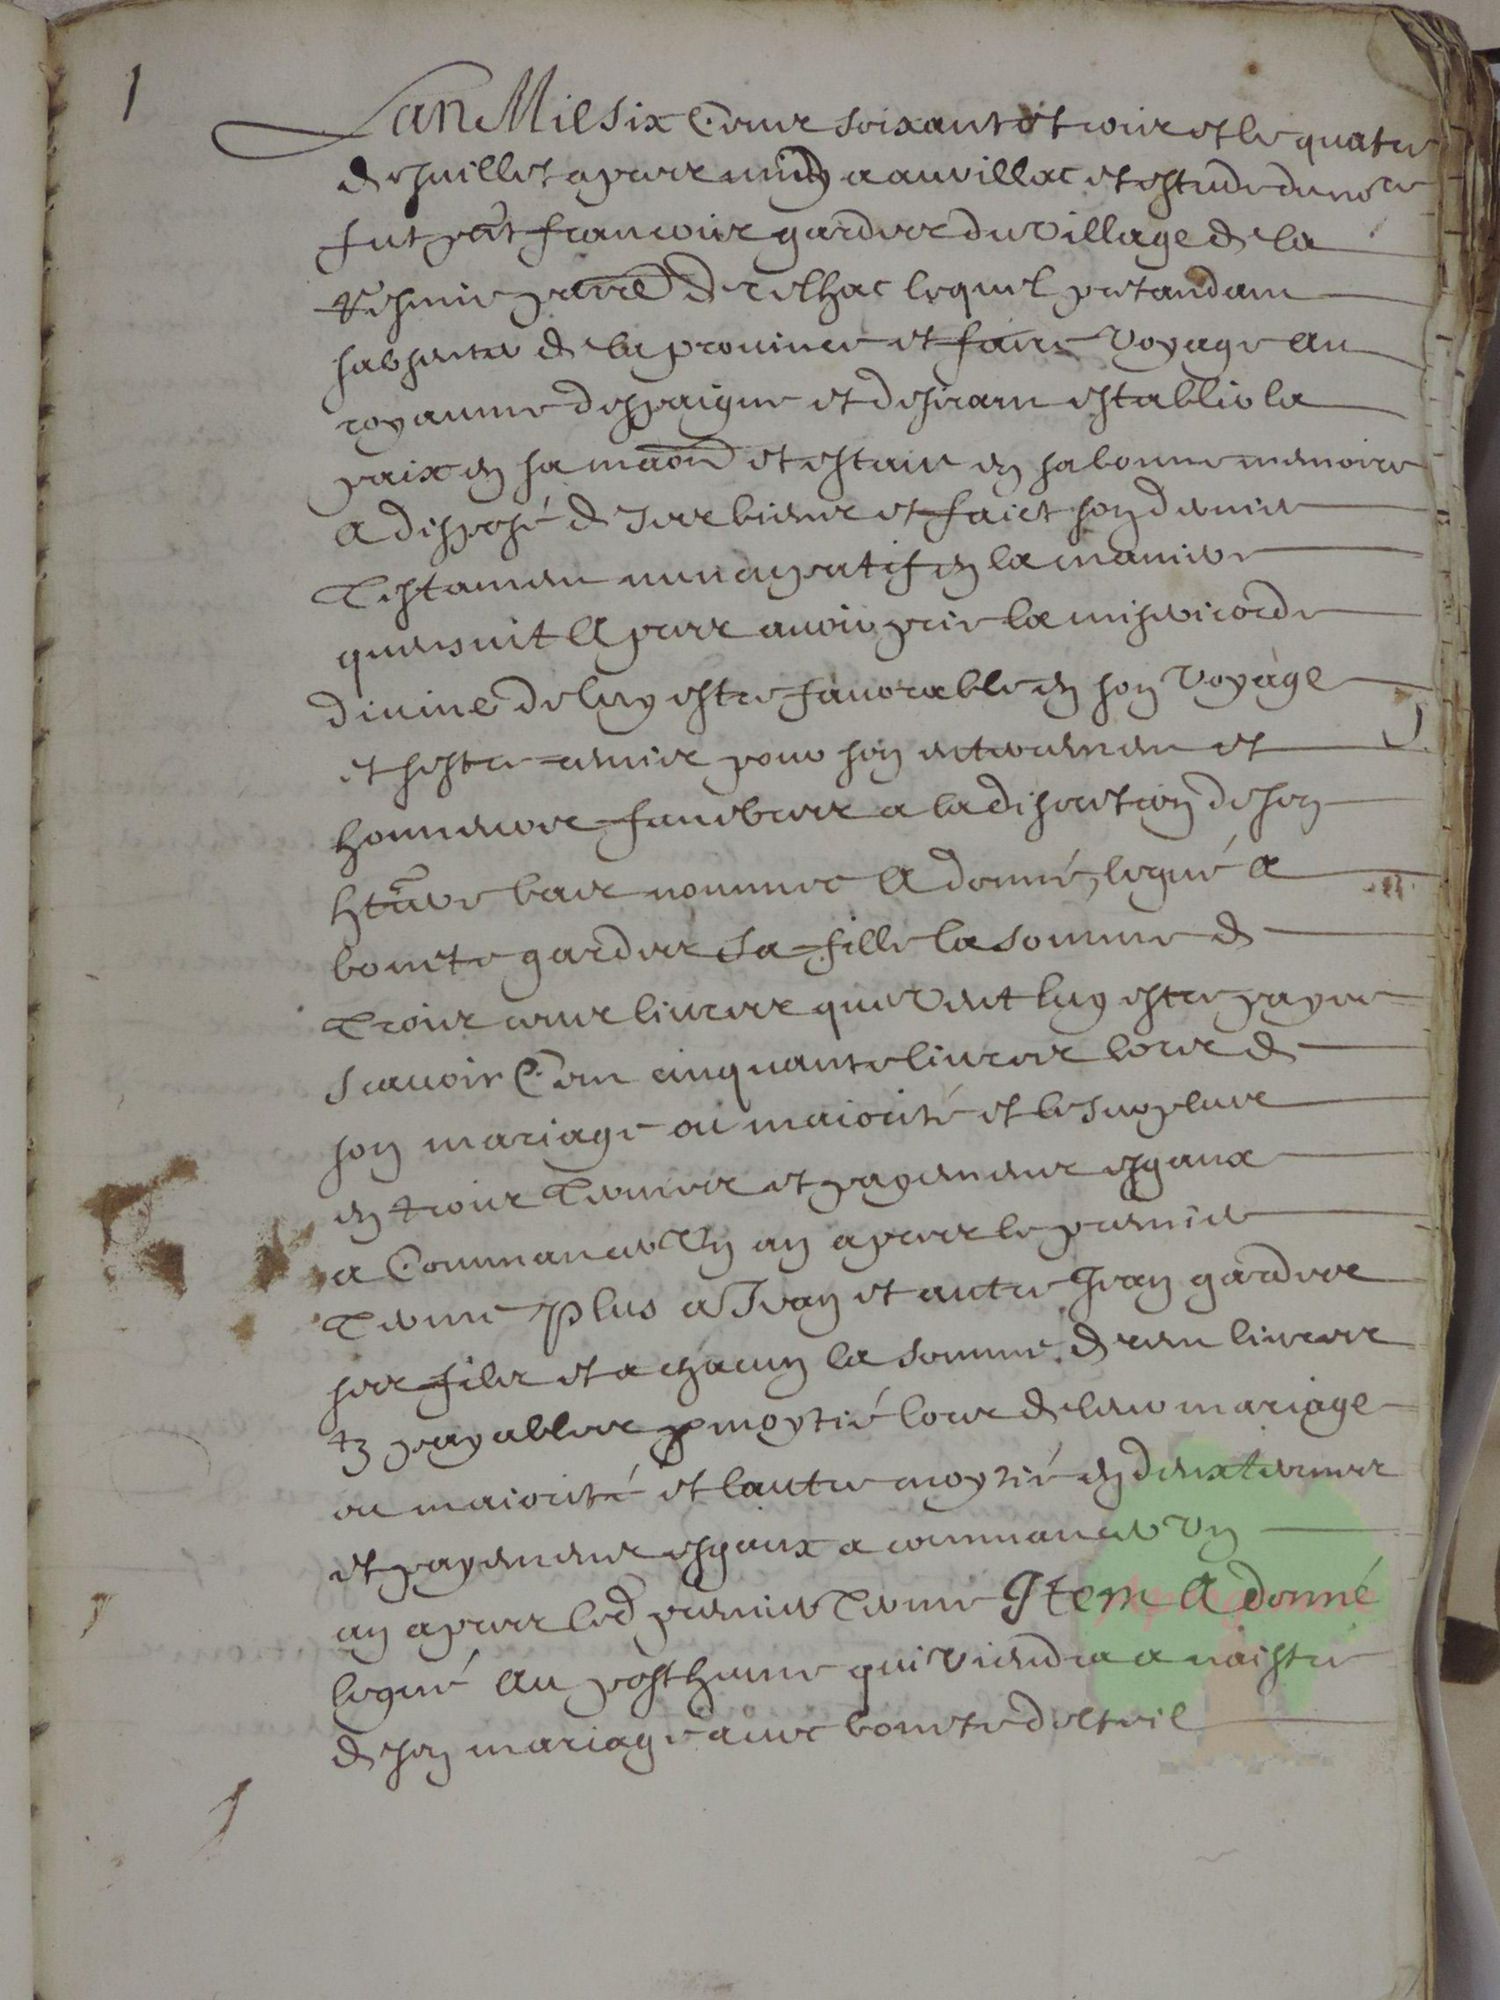 1
Lan Mil six Cens soixante et trois et le quatre
de juillet apres midy a auvillac et estude du no.re
fut pnt francois gardes du village de la
paroe de relhac lequel pretandant
sabsenter de la province et faire voyage au
royaume despaigne et desirant establir la
paix en sa maon et estant en sa bonne memoire
a disposé de ses biens et faict son dernier
Testament nuncupatif en la maniere
quensuit Apres avoir prie la misericorde
divine de luy estre favorable en son voyage
et sestre remis pour son enterrement et
honneurs funebres a la discretion de son
htiere bas nommee A donné, legué a
bonete gardes sa fille la somme de
Trois cens livres que veut luy estre payee
scavoir Cent cinquante livres lors de
son mariage ou maiorité et le surplus
en trois Termes et payemens esgaux
a Commancer Un an apres le premier
Terme Plus a Jean et autre Jean gardes
ses fils et a chacun la somme de cent livres
tz payables p moytié lors de leur mariage
ou maiorité et lautre moytié en deux termes
et payemens esgaux a commancer Un
an apres led premier Terme Item A donné
legué au posthume qui viendra a naistre
de son mariage avec bonete delteil